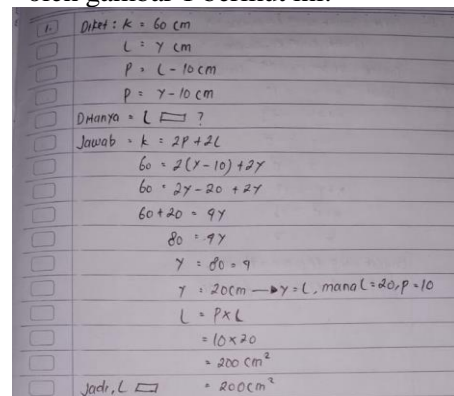 oleh gambar 1 berikut ini.
1. Diket : k = 60 cm
L = y cm
P = L - 10 cm
P = y - 10 cm
Ditanya = L ▭ ?
Jawab = k = 2P + 2L
60 = 2(y - 10) + 2y
60 = 2y - 20 + 2y
60 + 20 = 4y
80 = 4y
y = 80 : 4
y = 20 cm → y = L, mana L = 20, P = 10
L = P x L
= 10 x 20
= 200 cm²
Jadi, L ▭ = 200 cm²